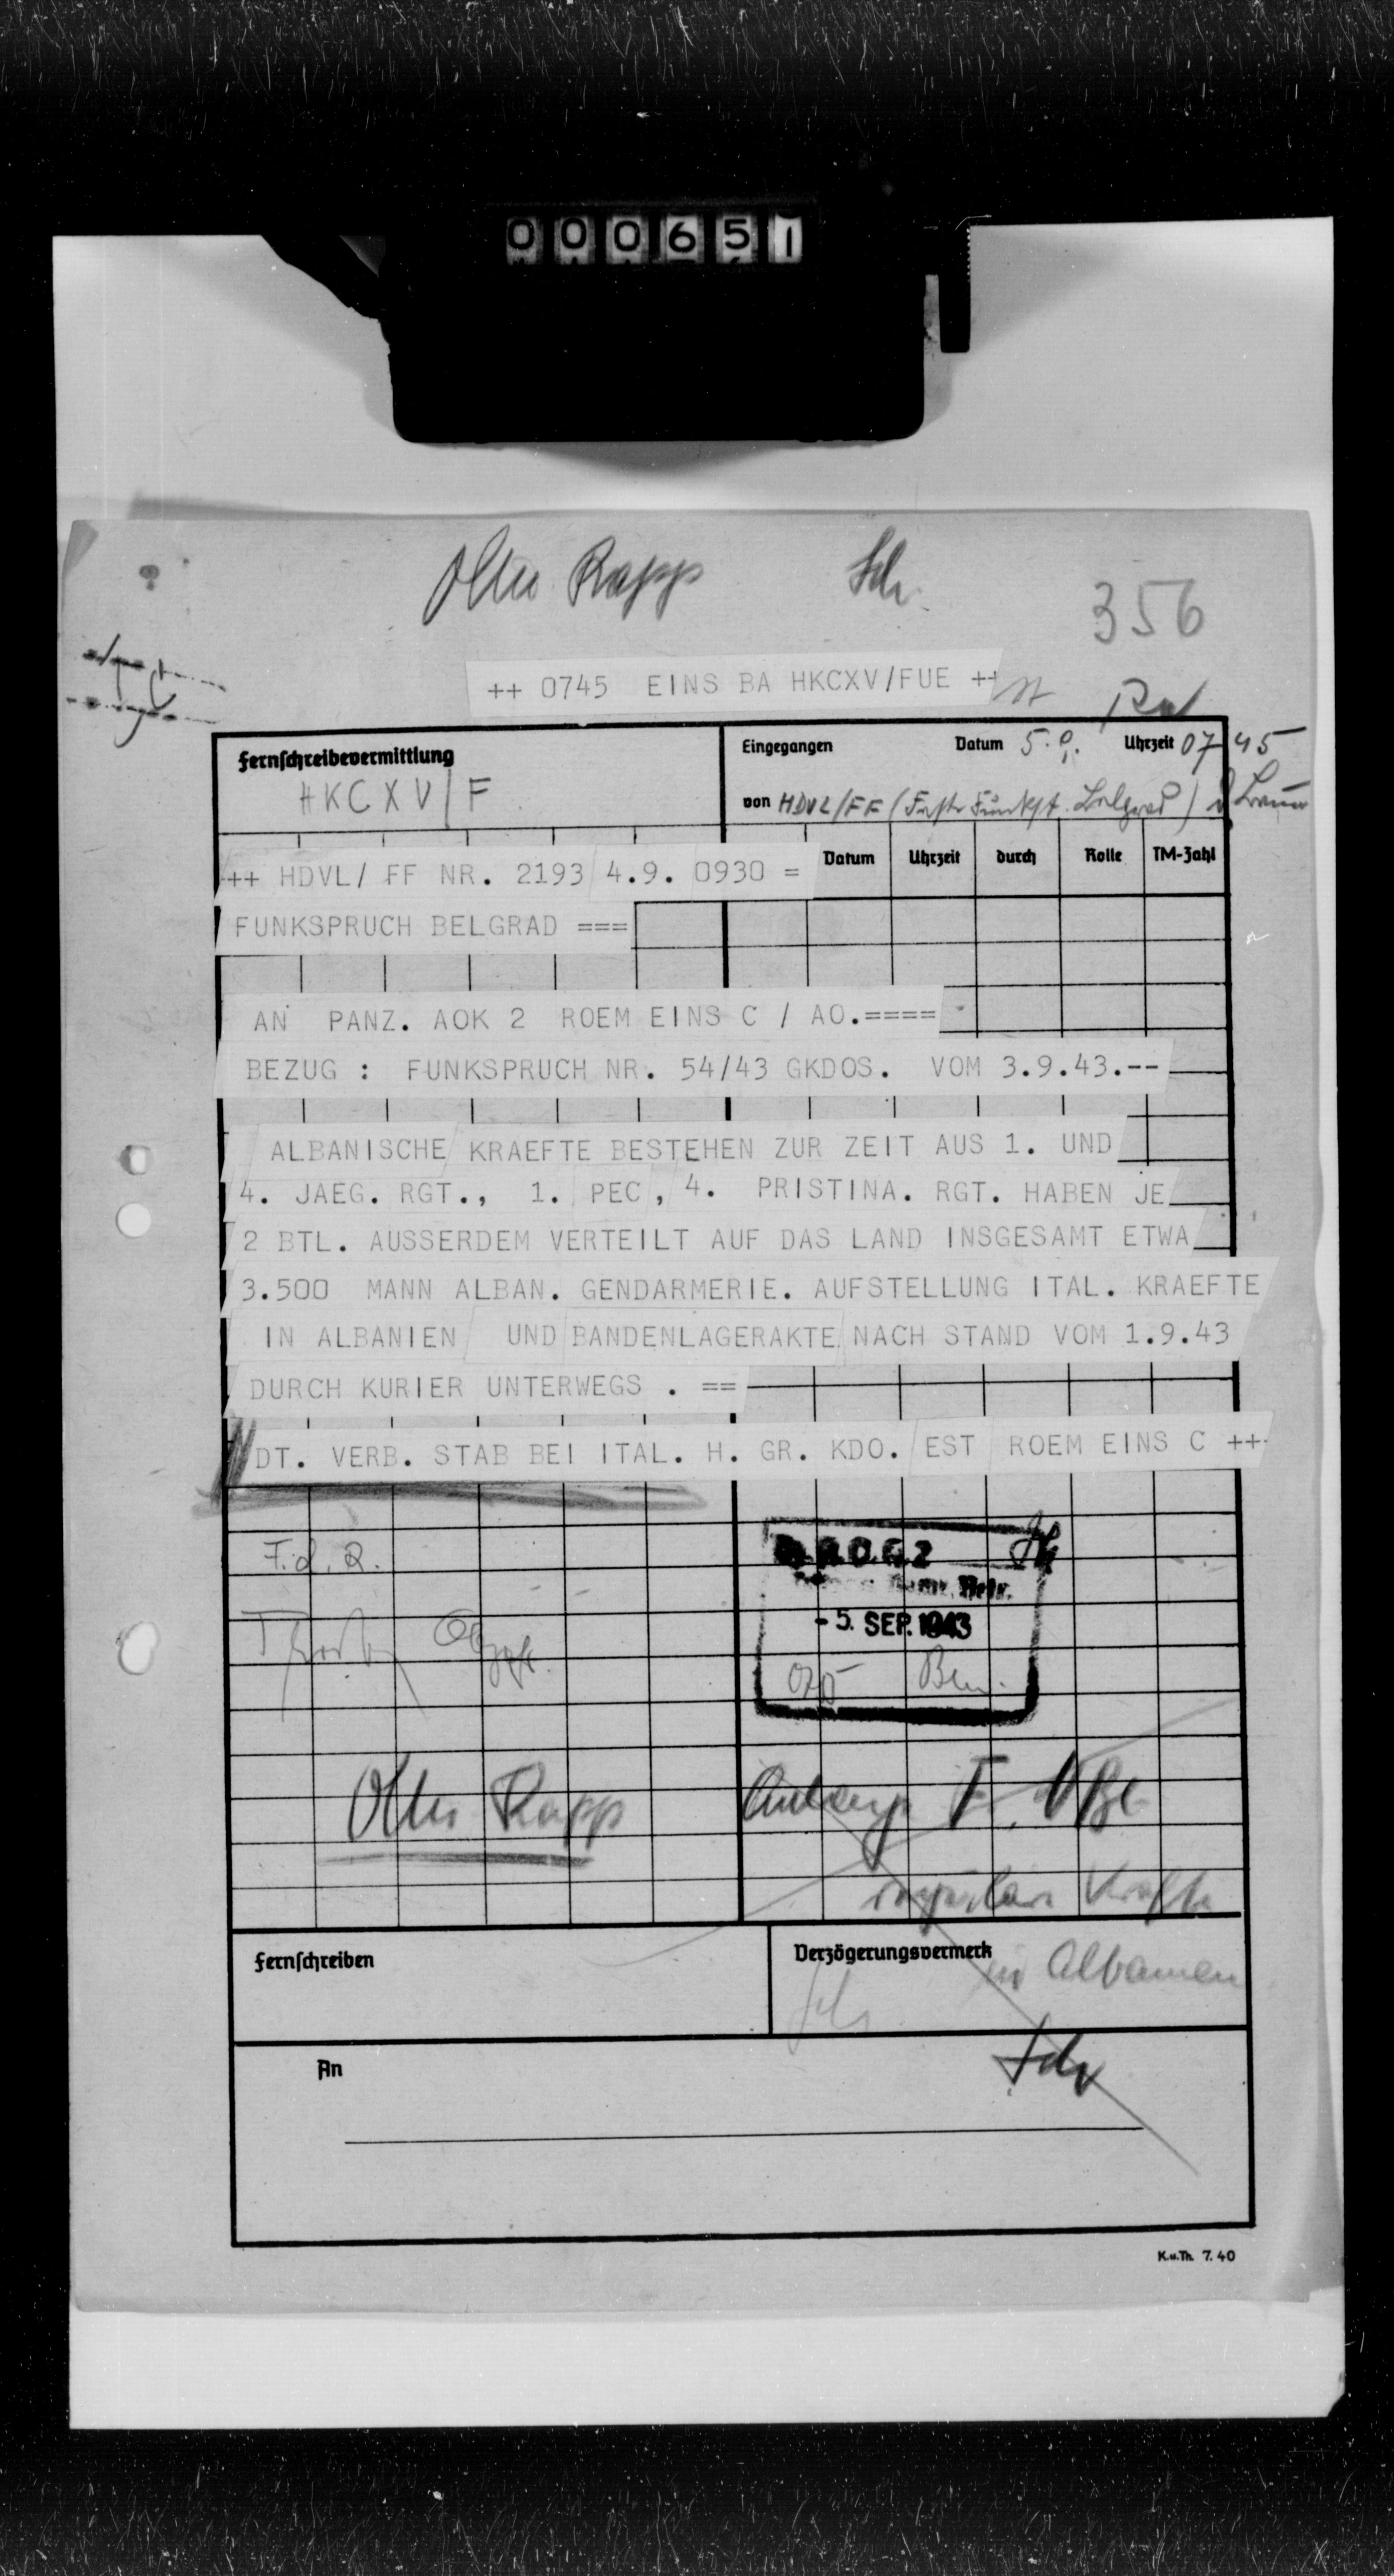 000651
Rapp
356
++ 0745 EINS BA HKCXV/FUE ++
Fernschreibevermittlung
HKCXV/F
Eingegangen Datum 5.9. Uhrzeit 07 45
von HDVL/FF
++ HDVL/ FF NR. 2193 4.9. 0930 =
Datum Uhrzeit durch Rolle TM-Zahl
FUNKSPRUCH BELGRAD ===
AN PANZ. AOK 2 ROEM EINS C / AO.====
BEZUG : FUNKSPRUCH NR. 54/43 GKDOS. VOM 3.9.43.--
ALBANISCHE KRAEFTE BESTEHEN ZUR ZEIT AUS 1. UND
4. JAEG. RGT., 1. PEC, 4. PRISTINA. RGT. HABEN JE
2 BTL. AUSSERDEM VERTEILT AUF DAS LAND INSGESAMT ETWA
3.500 MANN ALBAN. GENDARMERIE. AUFSTELLUNG ITAL. KRAEFTE
IN ALBANIEN UND BANDENLAGERAKTE NACH STAND VOM 1.9.43
DURCH KURIER UNTERWEGS . ==
DT. VERB. STAB BEI ITAL. H. GR. KDO. EST ROEM EINS C ++
F.d.R.
- 5. SEP. 1943
Rapp
Kräfte
in Albanien
Fernschreiben
Verzögerungsvermerk
An
K.u.Th. 7.40